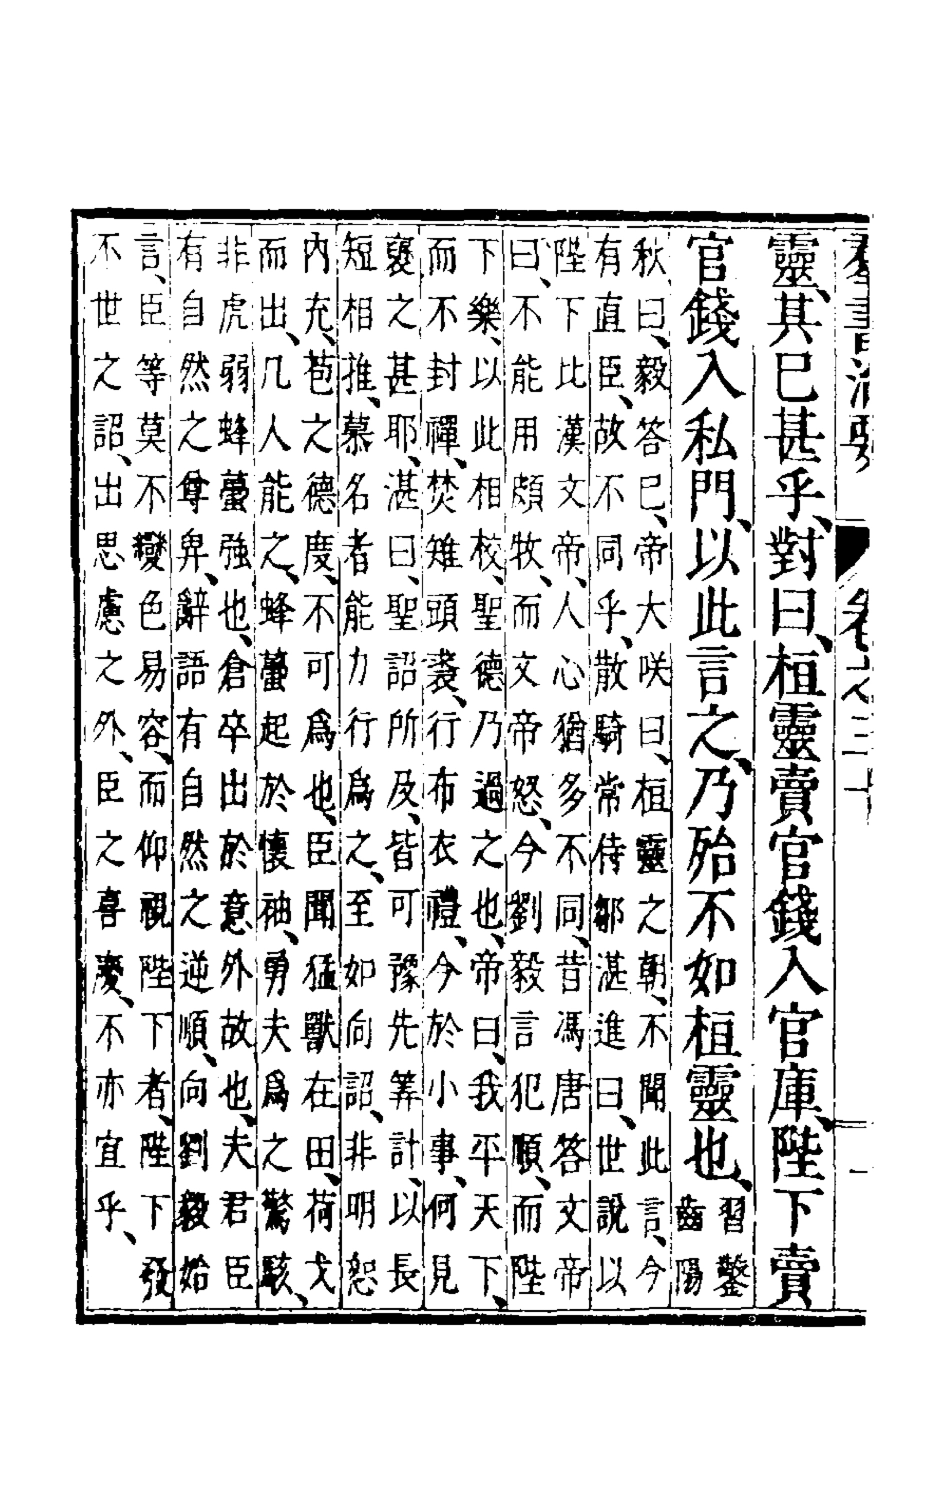 羣書治要 卷之三十
靈、其已甚乎、對曰、桓靈賣官錢入官庫、陛下賣
官錢入私門、以此言之、乃殆不如桓靈也、
習鑿
齒陽
秋曰、毅答已、帝大咲曰、桓靈之朝、不聞此言、今
有直臣、故不同乎、散騎常侍鄒湛進曰、世說以
陛下比漢文帝、人心猶多不同、昔馮唐答文帝
曰、不能用頗牧、而文帝怒、今劉毅言犯順、而陛
下樂、以此相校、聖德乃過之也、帝曰、我平天下、
而不封禪、焚雉頭裘、行布衣禮、今於小事、何見
襃之甚耶、湛曰、聖詔所及、皆可豫先筭計、以長
短相推、慕名者能力行爲之、至如向詔、非明恕
內充、苞之德度、不可爲也、臣聞猛獸在田、荷戈
而出、凡人能之、蜂蠆起於懷袖、勇夫爲之驚駭、
非虎弱蜂蠆強也、倉卒出於意外故也、夫君臣
有自然之尊卑、辭語有自然之逆順、向劉毅始
言、臣等莫不變色易容、而仰視陛下者、陛下發
不世之詔、出思慮之外、臣之喜慶、不亦宜乎、